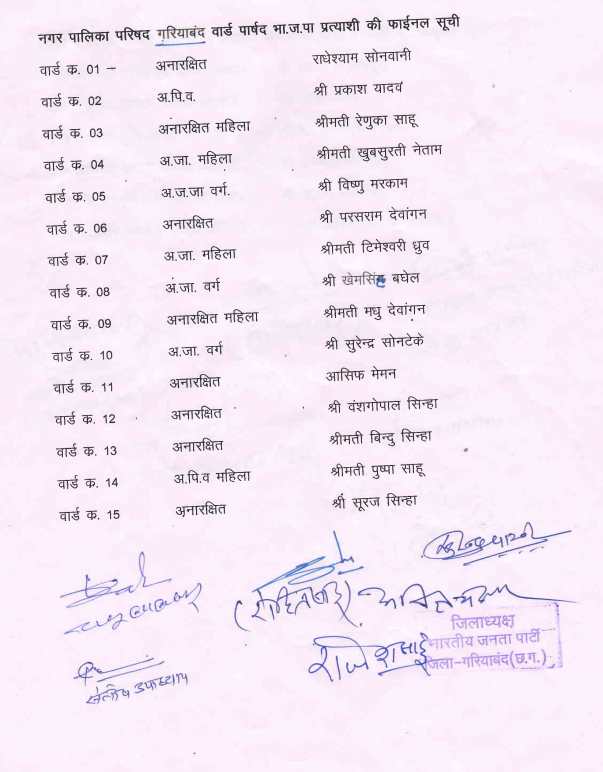 नगर पालिका परिषद गरियाबंद वार्ड पार्षद भा.ज.पा प्रत्याशी की फाईनल सूची
वार्ड क. 01 – अनारक्षित राधेश्याम सोनवानी
वार्ड क. 02 अ.पि.व. श्री प्रकाश यादव
वार्ड क. 03 अनारक्षित महिला श्रीमती रेणुका साहू
वार्ड क. 04 अ.जा. महिला श्रीमती खुबसुरती नेताम
वार्ड क. 05 अ.ज.जा वर्ग. श्री विष्णु मरकाम
वार्ड क. 06 अनारक्षित श्री परसराम देवांगन
वार्ड क. 07 अ.जा. महिला श्रीमती टिमेश्वरी ध्रुव
वार्ड क. 08 अ.जा. वर्ग श्री खेमसिंह बघेल
वार्ड क. 09 अनारक्षित महिला श्रीमती मधु देवांगन
वार्ड क. 10 अ.जा. वर्ग श्री सुरेन्द्र सोनटेके
वार्ड क. 11 अनारक्षित आसिफ मेमन
वार्ड क. 12 अनारक्षित श्री वंशगोपाल सिन्हा
वार्ड क. 13 अनारक्षित श्रीमती बिन्दु सिन्हा
वार्ड क. 14 अ.पि.व महिला श्रीमती पुष्पा साहू
वार्ड क. 15 अनारक्षित श्री सूरज सिन्हा
जिलाध्यक्ष
भारतीय जनता पार्टी
जिला-गरियाबंद(छ.ग.)
राजेश साहू
संतोष उपाध्याय